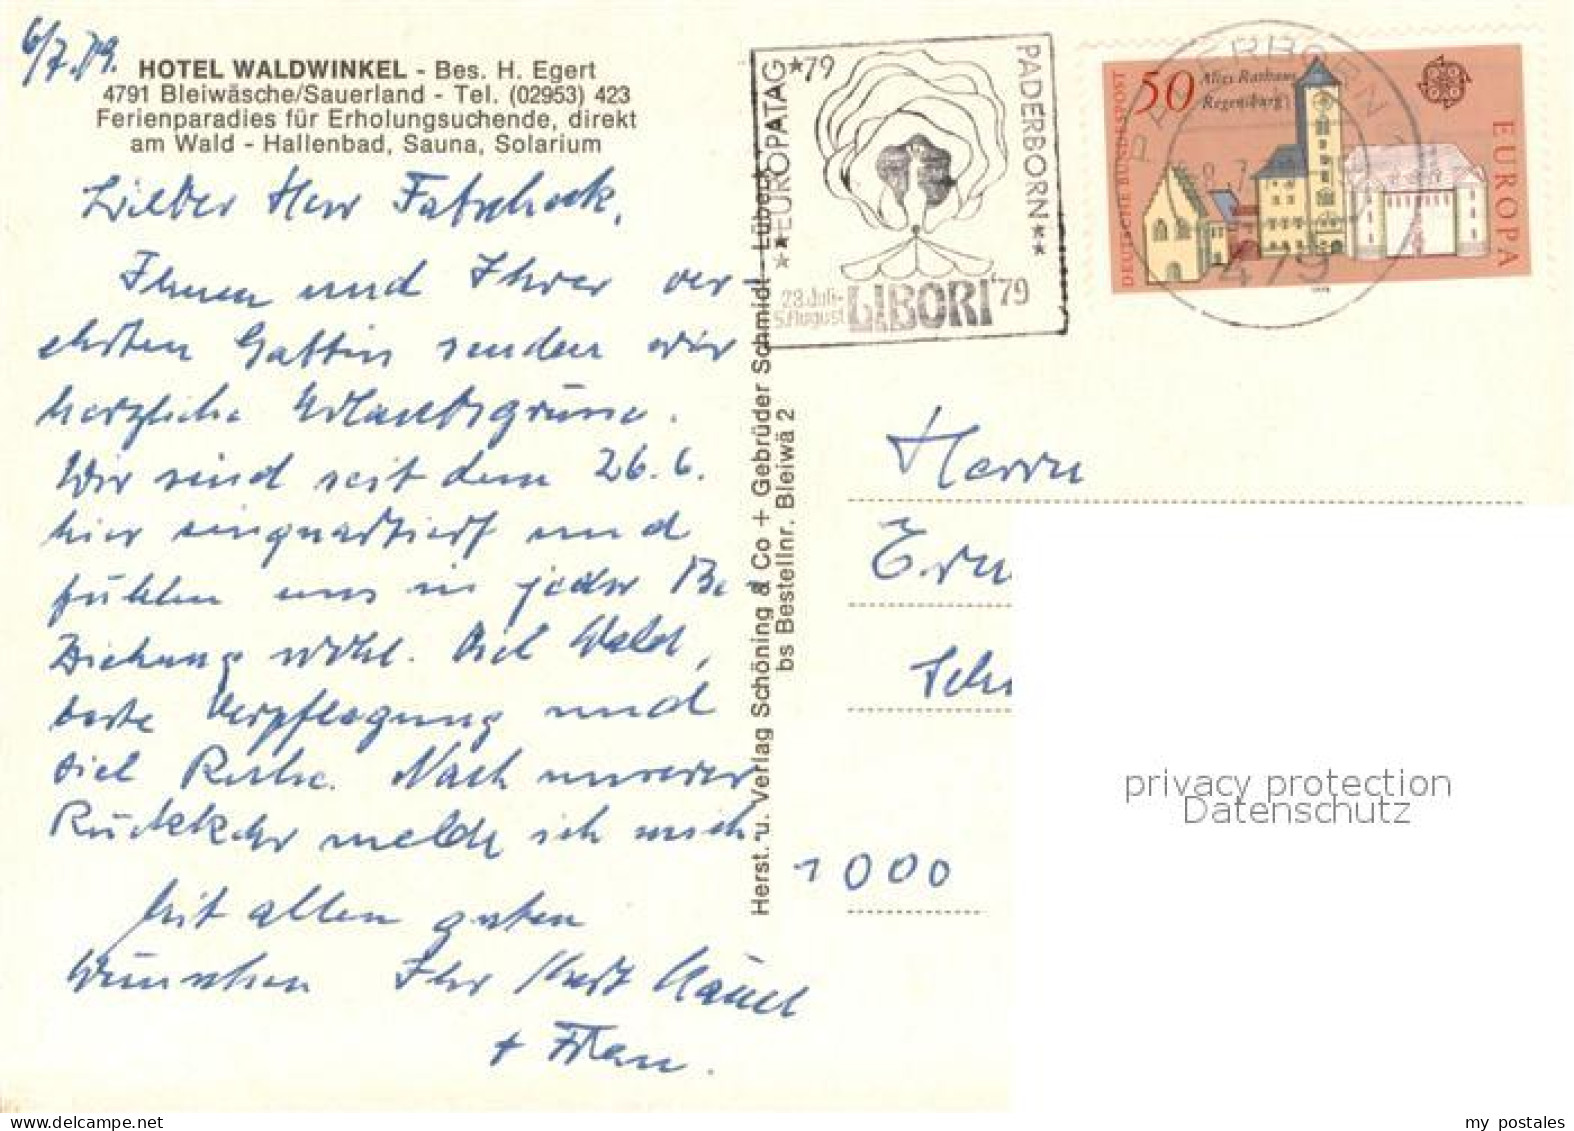 6/7.79.
HOTEL WALDWINKEL - Bes. H. Egert
4791 Bleiwäsche/Sauerland - Tel. (02953) 423
Ferienparadies für Erholungsuchende, direkt
am Wald - Hallenbad, Sauna, Solarium
Lieber Herr
Ihnen und Ihrer ver
ehrten Gattin senden wir
herzliche Urlaubsgrüsse.
Wir sind seit dem 26.6.
hier einquartiert und
fühlen uns in jeder Be
ziehung wohl. Viel Wald,
beste Verpflegung und
viel Ruhe. Nach unserer
Rückkehr melde ich mich
Mit allen guten
Wünschen Ihr Kurt
+ Frau.
Herst. u. Verlag Schöning & Co + Gebrüder Schmidt - Lübeck
bs Bestellnr. Bleiwä 2
★★EUROPATAG★'79
PADERBORN★★
28.Juli-
5.August LIBORI '79
PADERBORN
479
50 Altes Rathaus
Regensburg
DEUTSCHE BUNDESPOST
EUROPA
Herrn
1000
privacy protection
Datenschutz
my postales